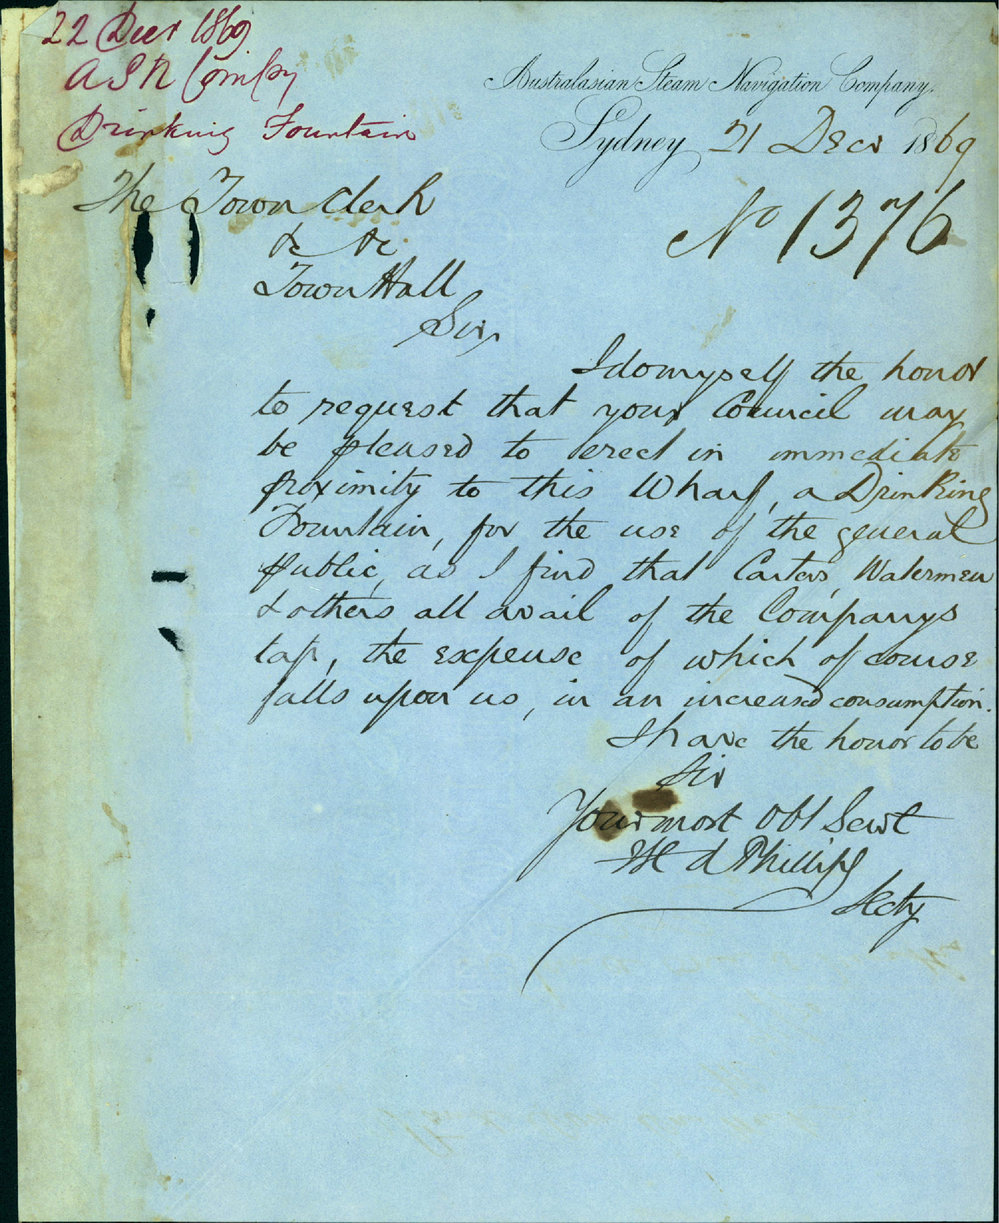 22 Decr 1869
A S N Compy
Drinking Fountain
Australasian Steam Navigation Company.
Sydney 21 Decr 1869
No 1376
The Town Clerk
&c &c
Town Hall
Sir,
I do myself the honor
to request that your Council may
be pleased to erect in immediate
proximity to this Wharf, a Drinking
Fountain, for the use of the general
public, as I find that Carters, Watermen
& others all avail of the Companys
tap, the expense of which of course
falls upon us, in an increased consumption.
I have the honor to be
Sir
Your most Obt Servt
Phillips
Secty